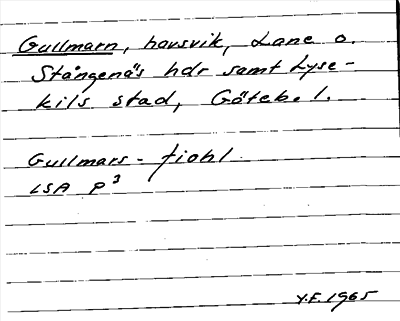 Gullmarn, havsvik, Lane o.
Stångenäs hdr samt Lyse-
kils stad, Göteb. l.
Gullmars-fiohl
LSA p³
Y.F. 1965